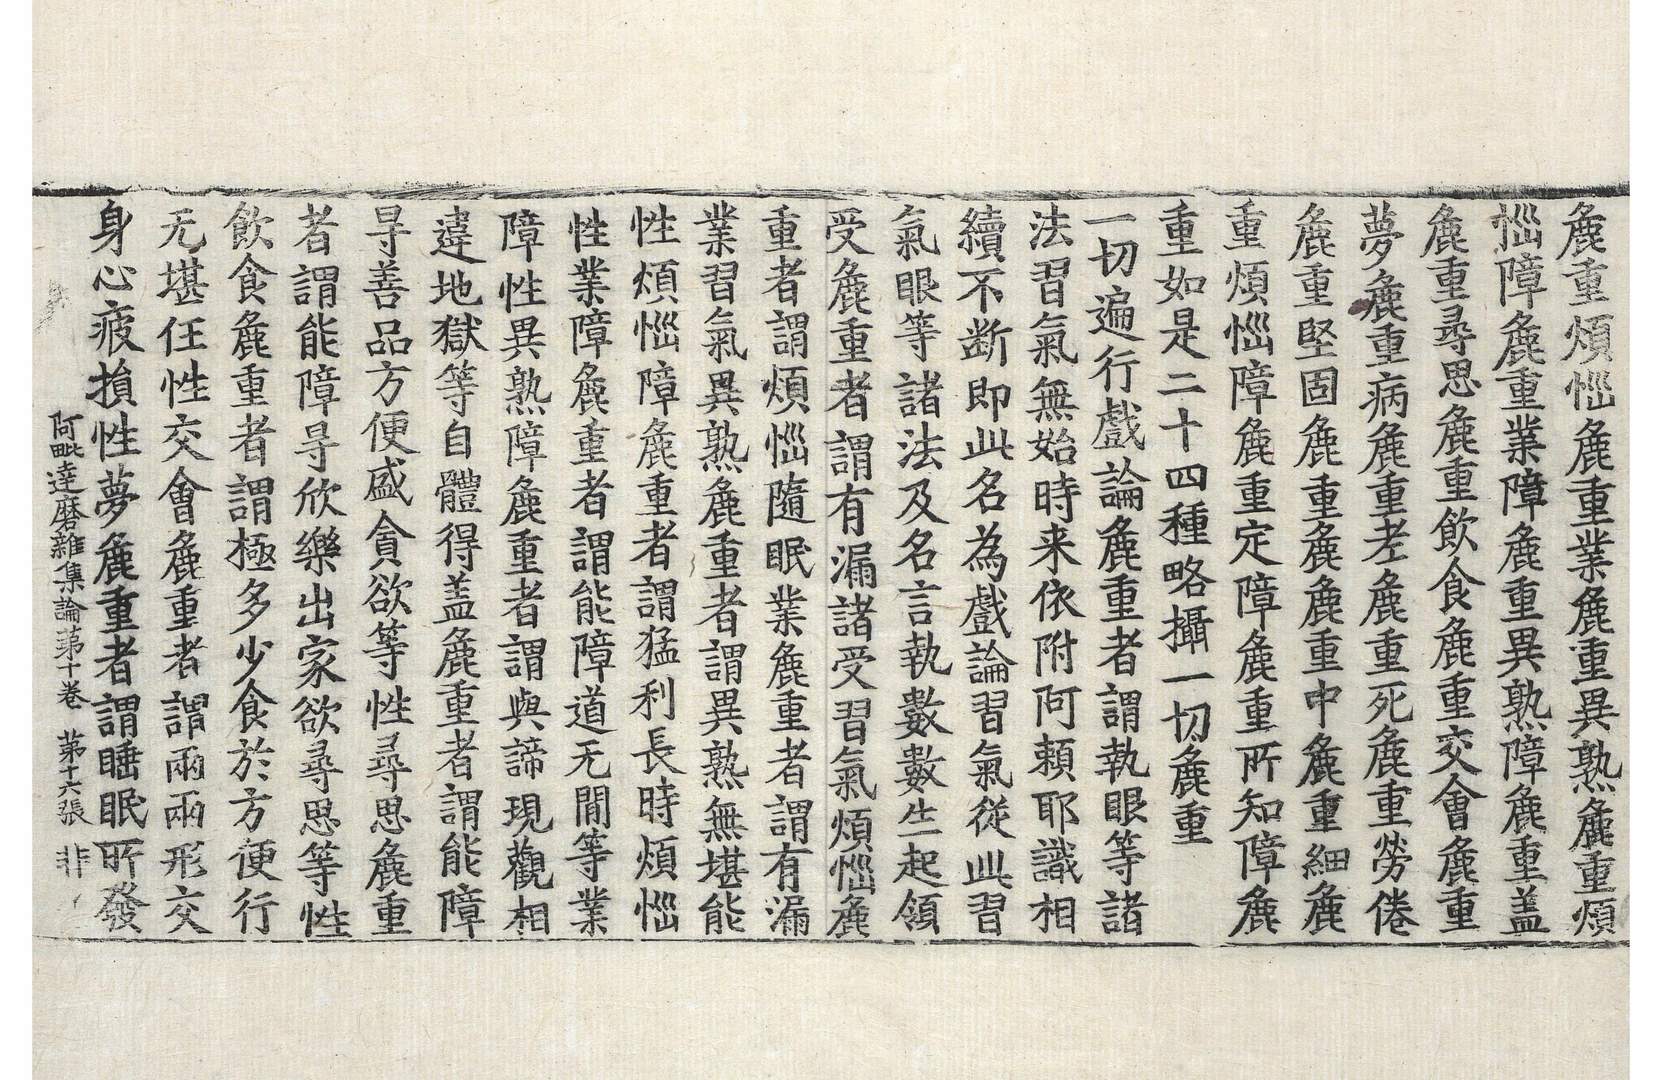 麁重煩惱麁重業麁重異熟麁重煩
惱障麁重業障麁重異熟障麁重盖
麁重尋思麁重飲食麁重交會麁重
夢麁重病麁重老麁重死麁重勞倦
麁重堅固麁重麁麁重中麁重細麁
重煩惱障麁重定障麁重所知障麁
重如是二十四種略攝一切麁重
一切遍行戲論麁重者謂執眼等諸
法習氣無始時来依附阿頼耶識相
續不断即此名為戲論習氣從此習
氣眼等諸法及名言執數數生起領
受麁重者謂有漏諸受習氣煩惱麁
重者謂煩惱隨眠業麁重者謂有漏
業習氣異熟麁重者謂異熟無堪能
性煩惱障麁重者謂猛利長時煩惱
性業障麁重者謂能障道无間等業
障性異熟障麁重者謂與諦現觀相
違地獄等自體得盖麁重者謂能障
㝵善品方便盛貪欲等性尋思麁重
者謂能障㝵欣樂出家欲尋思等性
飲食麁重者謂極多少食於方便行
无堪任性交會麁重者謂兩兩形交
身心疲損性夢麁重者謂睡眠所發
阿毗達磨雜集論苐十卷 苐十六張 非